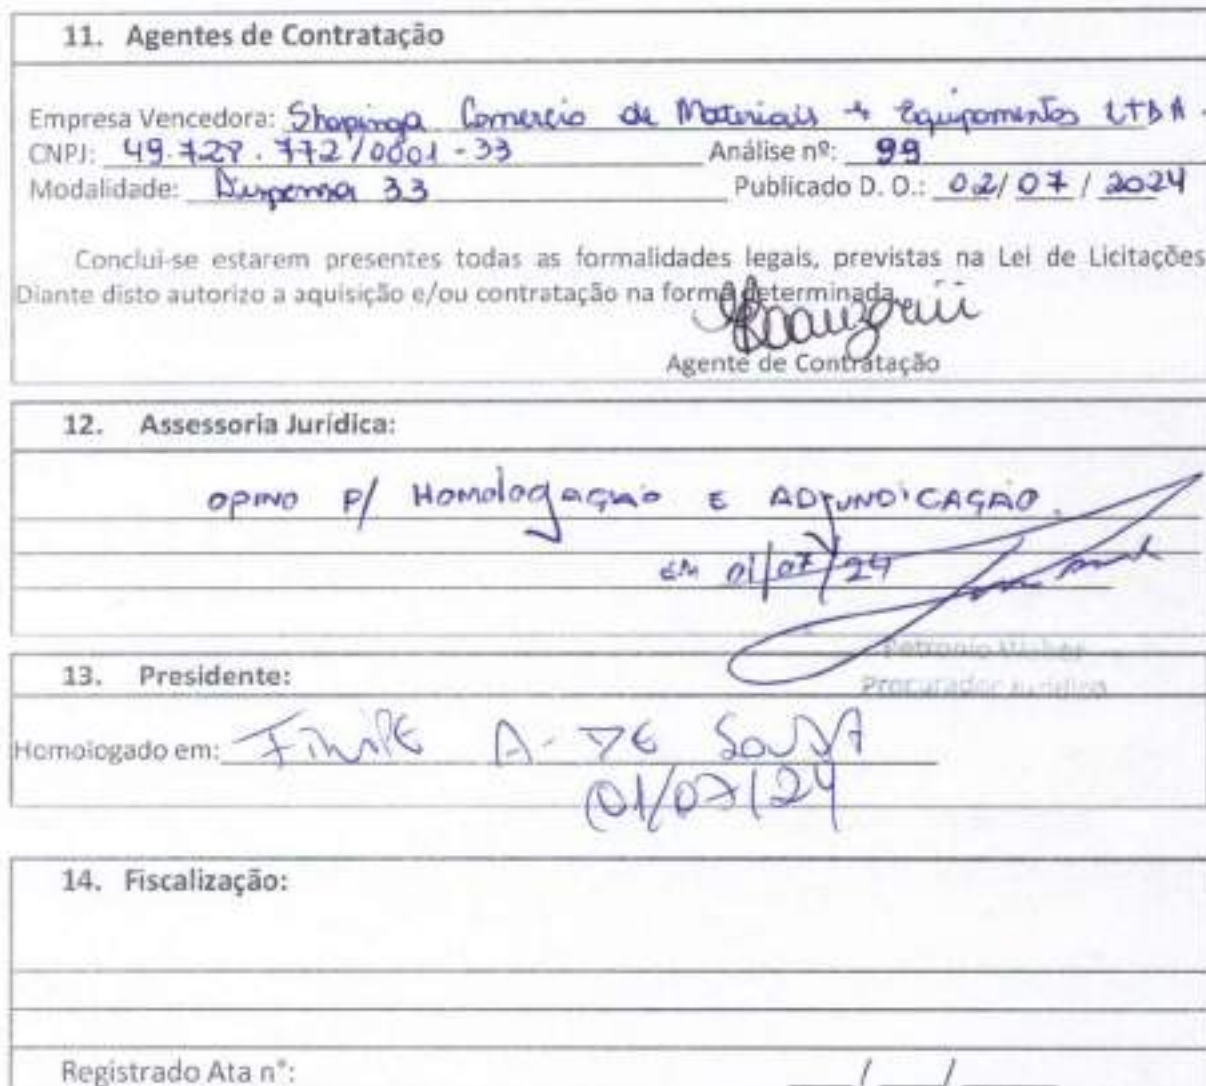 11. Agentes de Contratação
Empresa Vencedora: Shopinga Comercio de Materiais + Equipamentos LTDA.
CNPJ: 49.728.772/0001-33 Análise nº: 99
Modalidade: Dispensa 33 Publicado D. O.: 02/07/2024
Conclui-se estarem presentes todas as formalidades legais, previstas na Lei de Licitações
Diante disto autorizo a aquisição e/ou contratação na forma determinada
Agente de Contratação
12. Assessoria Jurídica:
OPINO P/ HOMOLOGAÇÃO E
EM 01/07/24
Procurador Jurídico
13. Presidente:
Homologado em: A. DE SOUSA
01/07/24
14. Fiscalização:
Registrado Ata n°: / /